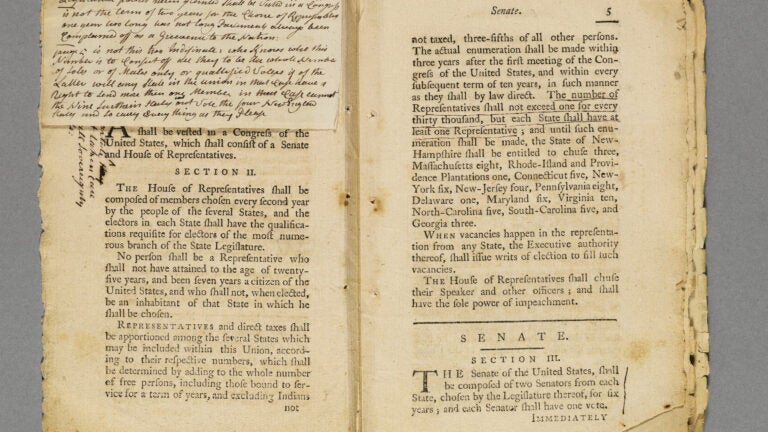 powers herein granted shall be Vested in a Congress
is not the term of two years for the Choice of Representatives
one year two long was not long Parliament always been
Complained off as a Greivance to the Nation:
is not this too Indefinate. who Knows who this
Number is to Consist of are they to be the whole Number
of Soles or of Males only or quallified Voters if of the
Latter will any State in the union in that Case have a
Right to send more than one Member in that Case cannot
the Nine Southern States out Vote the four New England
States and so carry Every thing as they Please
shall be vested in a Congress of the
United States, which shall consist of a Senate
and House of Representatives.
SECTION II.
THE House of Representatives shall be
composed of members chosen every second year
by the people of the several States, and the
electors in each State shall have the qualifica-
tions requisite for electors of the most nume-
rous branch of the State Legislature.
No person shall be a Representative who
shall not have attained to the age of twenty-
five years, and been seven years a citizen of the
United States, and who shall not, when elected,
be an inhabitant of that State in which he
shall be chosen.
REPRESENTATIVES and direct taxes shall
be apportioned among the several States which
may be included within this Union, accord-
ing to their respective numbers, which shall
be determined by adding to the whole number
of free persons, including those bound to ser-
vice for a term of years, and excluding Indians
not
Senate. 5
not taxed, three-fifths of all other persons.
The actual enumeration shall be made within
three years after the first meeting of the Con-
gress of the United States, and within every
subsequent term of ten years, in such manner
as they shall by law direct. The number of
Representatives shall not exceed one for every
thirty thousand, but each State shall have at
least one Representative; and until such enu-
meration shall be made, the State of New-
Hampshire shall be entitled to chuse three,
Massachusetts eight, Rhode-Island and Provi-
dence Plantations one, Connecticut five, New-
York six, New-Jersey four, Pennsylvania eight,
Delaware one, Maryland six, Virginia ten,
North-Carolina five, South-Carolina five, and
Georgia three.
WHEN vacancies happen in the representa-
tion from any State, the Executive authority
thereof, shall issue writs of election to fill such
vacancies.
THE House of Representatives shall chuse
their Speaker and other officers; and shall
have the sole power of impeachment.
SENATE.
SECTION III.
THE Senate of the United States, shall
be composed of two Senators from each
State, chosen by the Legislature thereof, for six
years; and each Senator shall have one vote.
IMMEDIATELY